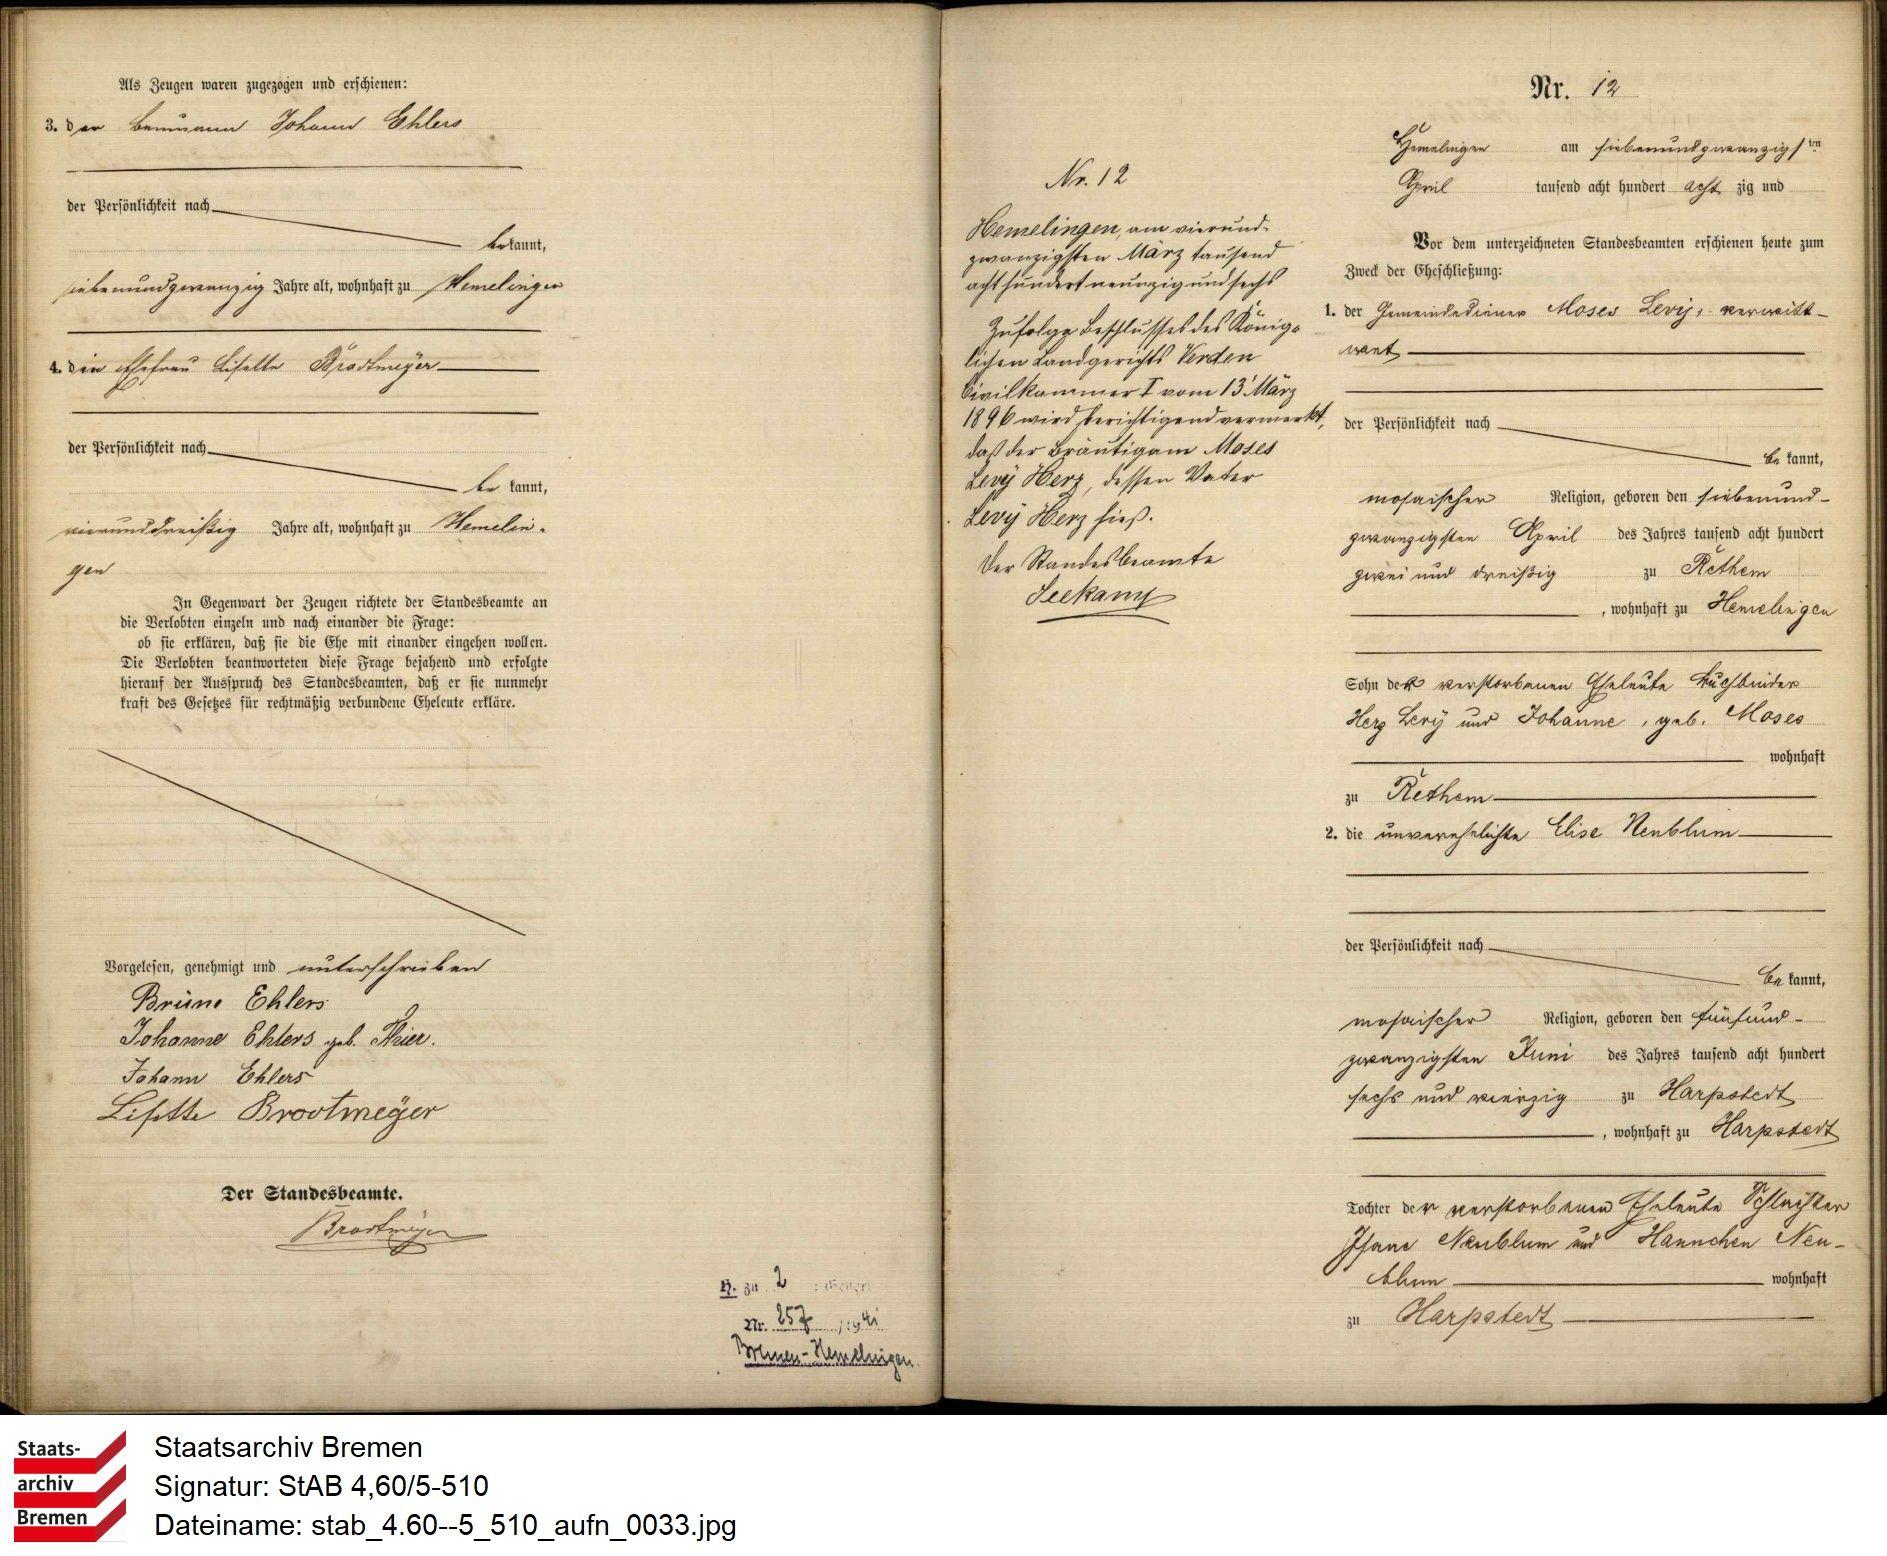 Als Zeugen waren zugezogen und erschienen:
3. der Baumann Johann Ehlers
der Persönlichkeit nach
bekannt,
siebenundzwanzig Jahre alt, wohnhaft zu Hemelingen
4. die Ehefrau Lisette Brodtmeÿer
der Persönlichkeit nach
be kannt,
vierunddreißig Jahre alt, wohnhaft zu Hemelin-
gen
In Gegenwart der Zeugen richtete der Standesbeamte an
die Verlobten einzeln und nach einander die Frage:
ob sie erklären, daß sie die Ehe mit einander eingehen wollen.
Die Verlobten beantworteten diese Frage bejahend und erfolgte
hierauf der Ausspruch des Standesbeamten, daß er sie nunmehr
kraft des Gesetzes für rechtmäßig verbundene Eheleute erkläre.
Vorgelesen, genehmigt und unterschrieben
Brüne Ehlers
Johanne Ehlers geb. Thier.
Johann Ehlers
Lisette Brodtmeÿer
Der Standesbeamte.
Brodtmeÿer
H. zu 2
Nr. 257 1941
Bremen-Hemelingen.
Nr. 12
Hemelingen, am vierund-
zwanzigsten März tausend
achthundertneunzigundsechs
Zufolge Beschlusses des König-
lichen Landgerichts Verden
Civilkammer I vom 13' März
1896 wird berichtigend vermerkt,
daß der Bräutigam Moses
Levÿ Herz, dessen Vater
Levÿ Herz hieß.
Der Standesbeamte
Seekamp
Nr. 12
Hemelingen am siebenundzwanzigsten
April tausend acht hundert acht zig und
Vor dem unterzeichneten Standesbeamten erschienen heute zum
Zweck der Eheschließung:
1. der Gemeindediener Moses Levÿ, verwitt-
wet
der Persönlichkeit nach
be kannt,
mosaischer Religion, geboren den siebenund-
zwanzigsten April des Jahres tausend acht hundert
zwei und dreißig zu Rethem
, wohnhaft zu Hemelingen
Sohn der verstorbenen Eheleute Buchbinder
Herz Levÿ und Johanne, geb. Moses
wohnhaft
zu Rethem
2. die unverehelichte Elise Neublum
der Persönlichkeit nach
be kannt,
mosaischer Religion, geboren den fünfund-
zwanzigsten Juni des Jahres tausend acht hundert
sechs und vierzig zu Harpstedt
, wohnhaft zu Harpstedt
Tochter der verstorbenen Eheleute Schlachter
Isaac Neublum und Hannchen Neu-
blum wohnhaft
zu Harpstedt
Staats-
archiv
Bremen
Staatsarchiv Bremen
Signatur: StAB 4,60/5-510
Dateiname: stab_4.60--5_510_aufn_0033.jpg